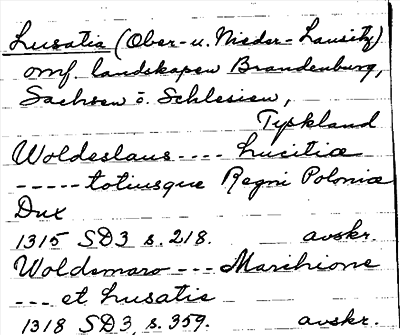 Lusatia (Ober- u. Nieder-Lausitz)
omf. landskapen Brandenburg,
Sachsen o. Schlesien,
Tyskland
Woldeslaus ---- Lucitiæ
----- totiusque Regni Poloniæ
Dux
1315 SD3 s. 218. avskr.
Woldemaro --- Marchione
--- et Lusatie
1318 SD3, s. 359. avskr.